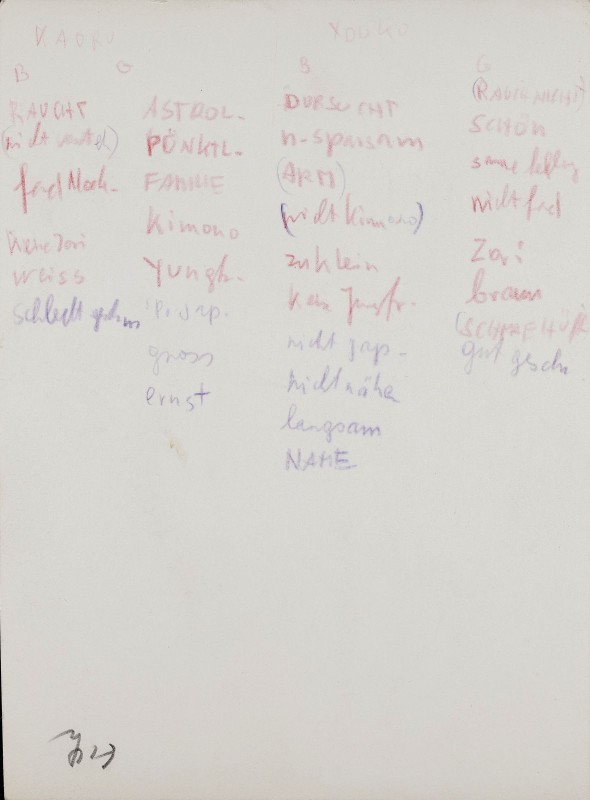 KAORU
B G
RAUCHT
fad Mach-
Keine Zori
weiss
schlecht
ASTROL-
PÜNKTL-
FAMILIE
Kimono
Yungfr.
jap.
gross
ernst
YOUKO
B G
DURSUCHT
n-sparsam
(ARM)
(nicht Kimono)
zu klein
kein Jungfr.
nicht jap-
nicht nähen
langsam
NAME
(RAUCH NICHT)
SCHÖN
nicht fad
Zori
braun
gut